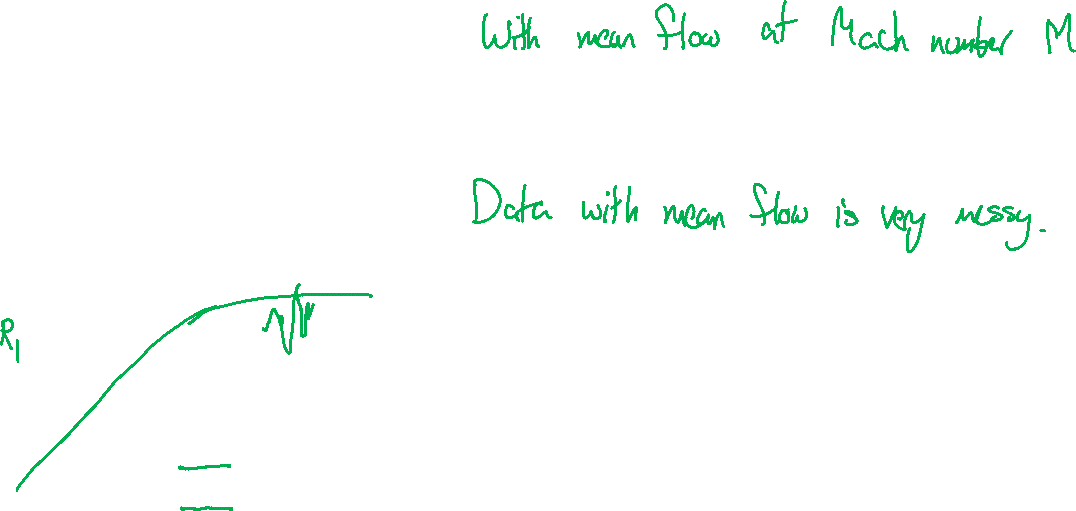 With mean flow at Mach number M
Data with mean flow is very messy.
R1